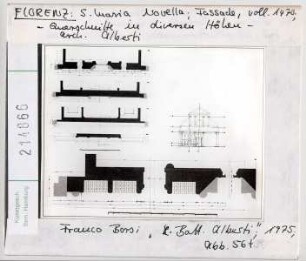 FLORENZ: S. Maria Novella, Fassade, voll. 1470.
- Querschnitte in diversen Höhen -
arch. Alberti
214066
Kunstgesch.
Sem. Hamburg
Franco Borsi, "L. Batt. Alberti", 1975,
Abb. 56f.